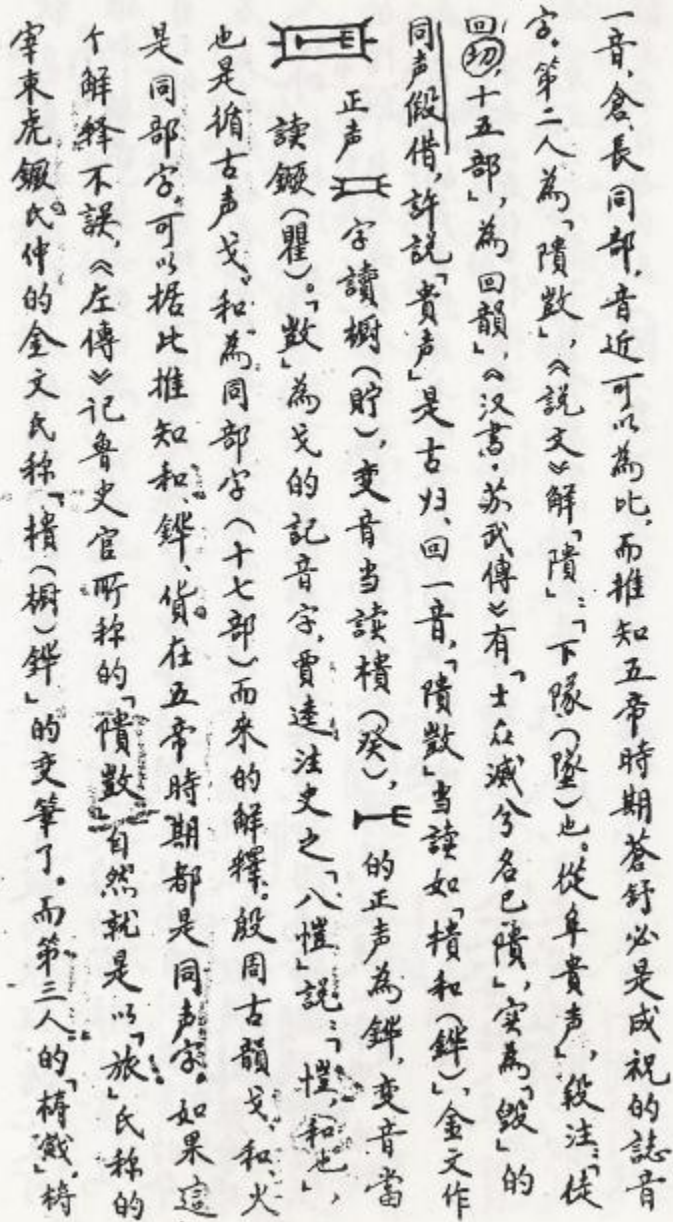 一音,倉、長同部,音近可以為比,而推知五帝時期蒼舒必是成祝的誌音
字。第二人為「隤敳」,《說文》解「隤」:「下隊(墜)也。從阜貴声」,段注:「徒
回切,十五部」,為回韻」,《汉書·苏武傳》有「士众滅兮名已隤」,实為「毀」的
同声假借,許說「貴声」是古归、回一音,「隤敳」当读如「樻和(鏵)」,金文作
正声 字讀橱(貯),变音当读樻(癸), 的正声為鏵,变音當
讀钁(瞿)。「敳」為戈的記音字,賈逵注史之「八愷」説:「愷,和也」,
也是循古声戈、和為同部字(十七部)而来的解釋。殷周古韻戈、和、火
是同部字,可以据此推知和、鏵、貨。在五帝時期都是同声字。如果這
个解释不誤,《左傳》记魯史官所称的「隤敳」自然就是以「旅」氏称的
宰東虎钁氏仲的金文氏称「樻(橱)鏵」的变筆了。而第三人的「梼戭」梼